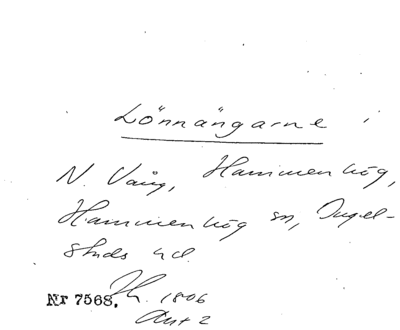 Lönnängarne
N. Vång, Hammenhög,
Hammenhög sn, Ingel-
stads hd.
Nr 7568. Jh. 1806
Akt 2